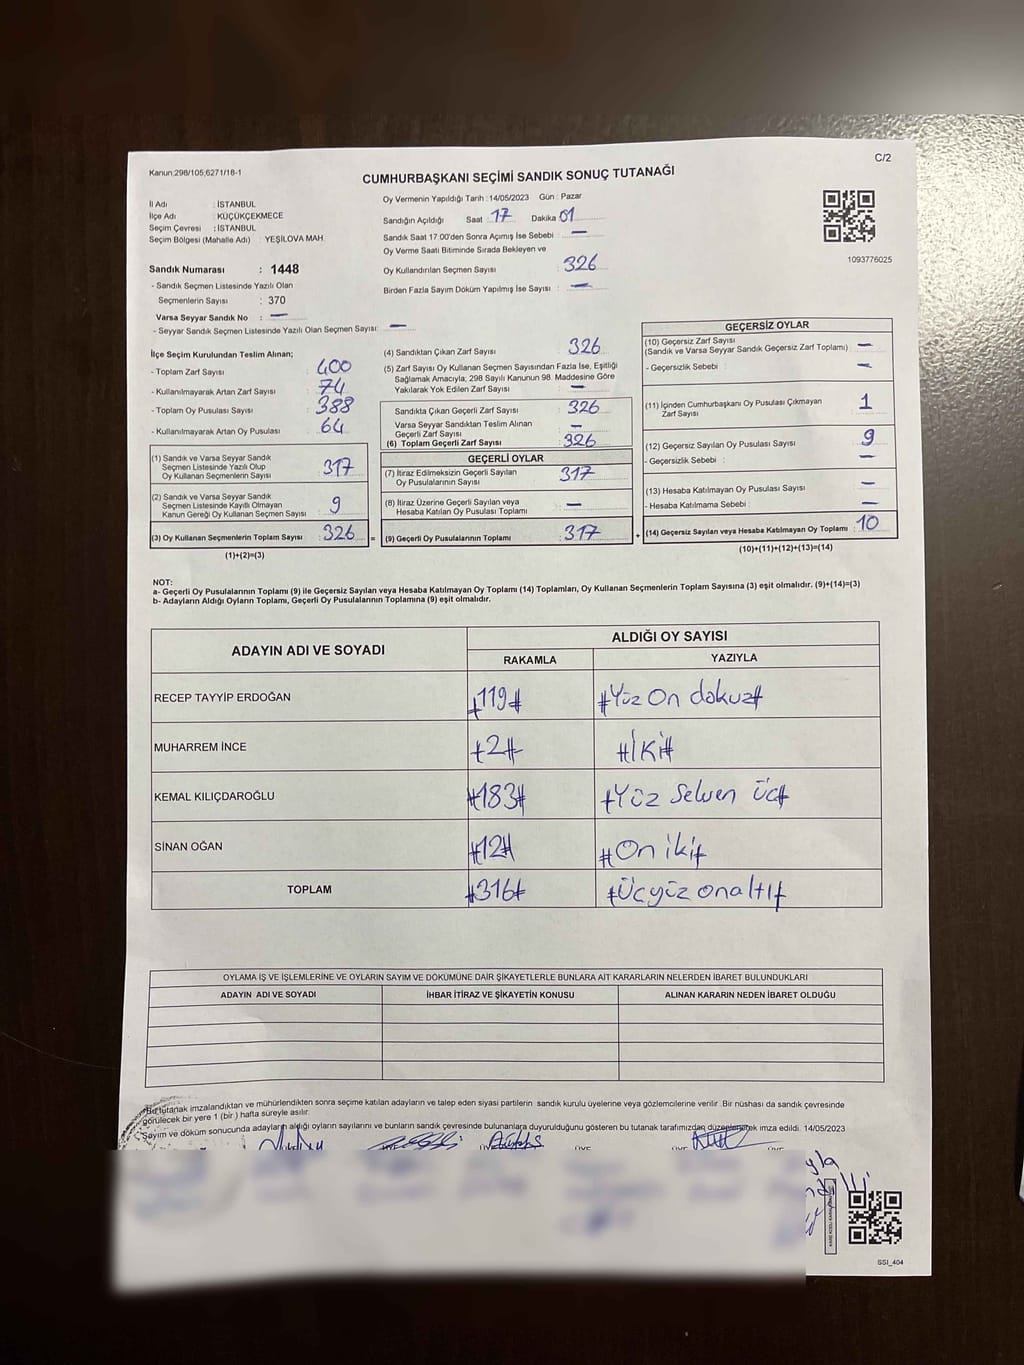 Kanun;298/105,6271/18-1
C/2
CUMHURBAŞKANI SEÇİMİ SANDIK SONUÇ TUTANAĞI
İl Adı : İSTANBUL
İlçe Adı : KÜÇÜKÇEKMECE
Seçim Çevresi : İSTANBUL
Seçim Bölgesi (Mahalle Adı) : YEŞİLOVA MAH.
Sandık Numarası : 1448
- Sandık Seçmen Listesinde Yazılı Olan
Seçmenlerin Sayısı : 370
Varsa Seyyar Sandık No : —
- Seyyar Sandık Seçmen Listesinde Yazılı Olan Seçmen Sayısı: —
Oy Vermenin Yapıldığı Tarih :14/05/2023 Gün : Pazar
Sandığın Açıldığı Saat 17 Dakika 01
Sandık Saat 17:00'den Sonra Açımış İse Sebebi : —
Oy Verme Saati Bitiminde Sırada Bekleyen ve
Oy Kullandırılan Seçmen Sayısı : 326
Birden Fazla Sayım Döküm Yapılmış İse Sayısı : —
1093776025
İlçe Seçim Kurulundan Teslim Alınan;
- Toplam Zarf Sayısı : 400
- Kullanılmayarak Artan Zarf Sayısı : 74
- Toplam Oy Pusulası Sayısı : 388
- Kullanılmayarak Artan Oy Pusulası : 64
(1) Sandık ve Varsa Seyyar Sandık
Seçmen Listesinde Yazılı Olup
Oy Kullanan Seçmenlerin Sayısı : 317
(2) Sandık ve Varsa Seyyar Sandık
Seçmen Listesinde Kayıtlı Olmayan
Kanun Gereği Oy Kullanan Seçmen Sayısı : 9
(3) Oy Kullanan Seçmenlerin Toplam Sayısı : 326 =
(1)+(2)=(3)
(4) Sandıktan Çıkan Zarf Sayısı : 326
(5) Zarf Sayısı Oy Kullanan Seçmen Sayısından Fazla İse, Eşitliği
Sağlamak Amacıyla; 298 Sayılı Kanunun 98. Maddesine Göre
Yakılarak Yok Edilen Zarf Sayısı : —
Sandıkta Çıkan Geçerli Zarf Sayısı : 326
Varsa Seyyar Sandıktan Teslim Alınan
Geçerli Zarf Sayısı : —
(6) Toplam Geçerli Zarf Sayısı : 326
GEÇERLİ OYLAR
(7) İtiraz Edilmeksizin Geçerli Sayılan
Oy Pusulalarının Sayısı : 317
(8) İtiraz Üzerine Geçerli Sayılan veya
Hesaba Katılan Oy Pusulası Toplamı : —
(9) Geçerli Oy Pusulalarının Toplamı : 317 +
GEÇERSİZ OYLAR
(10) Geçersiz Zarf Sayısı
(Sandık ve Varsa Seyyar Sandık Geçersiz Zarf Toplamı) : —
- Geçersizlik Sebebi : —
(11) İçinden Cumhurbaşkanı Oy Pusulası Çıkmayan
Zarf Sayısı : 1
(12) Geçersiz Sayılan Oy Pusulası Sayısı : 9
- Geçersizlik Sebebi : —
(13) Hesaba Katılmayan Oy Pusulası Sayısı : —
- Hesaba Katılmama Sebebi : —
(14) Geçersiz Sayılan veya Hesaba Katılmayan Oy Toplamı : 10
(10)+(11)+(12)+(13)=(14)
NOT:
a- Geçerli Oy Pusulalarının Toplamı (9) ile Geçersiz Sayılan veya Hesaba Katılmayan Oy Toplamı (14) Toplamları, Oy Kullanan Seçmenlerin Toplam Sayısına (3) eşit olmalıdır. (9)+(14)=(3)
b- Adayların Aldığı Oyların Toplamı, Geçerli Oy Pusulalarının Toplamına (9) eşit olmalıdır.
ADAYIN ADI VE SOYADI
ALDIĞI OY SAYISI
RAKAMLA YAZIYLA
RECEP TAYYİP ERDOĞAN #119# #Yüz On dokuz#
MUHARREM İNCE #2# #İKİ#
KEMAL KILIÇDAROĞLU #183# #Yüz Seksen Üç#
SİNAN OĞAN #12# #On iki#
TOPLAM #316# #Üçyüz onaltı#
OYLAMA İŞ VE İŞLEMLERİNE VE OYLARIN SAYIM VE DÖKÜMÜNE DAİR ŞİKAYETLERLE BUNLARA AİT KARARLARIN NELERDEN İBARET BULUNDUKLARI
ADAYIN ADI VE SOYADI İHBAR İTİRAZ VE ŞİKAYETİN KONUSU ALINAN KARARIN NEDEN İBARET OLDUĞU
Bu tutanak imzalandıktan ve mühürlendikten sonra seçime katılan adayların ve talep eden siyasi partilerin sandık kurulu üyelerine veya gözlemcilerine verilir .Bir nüshası da sandık çevresinde
görülecek bir yere 1 (bir ) hafta süreyle asılır.
Sayım ve döküm sonucunda adayların aldığı oyların sayılarını ve bunların sandık çevresinde bulunanlara duyurulduğunu gösteren bu tutanak tarafımızdan düzenlenerek imza edildi. 14/05/2023
SSİ_404